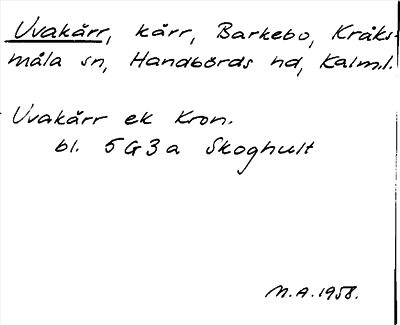 Uvakärr, kärr, Barkebo, Kråks-
måla sn, Handbörds hd, Kalm.l.
Uvakärr ek Kron.
bl. 5G3a Skoghult
M.A. 1958.